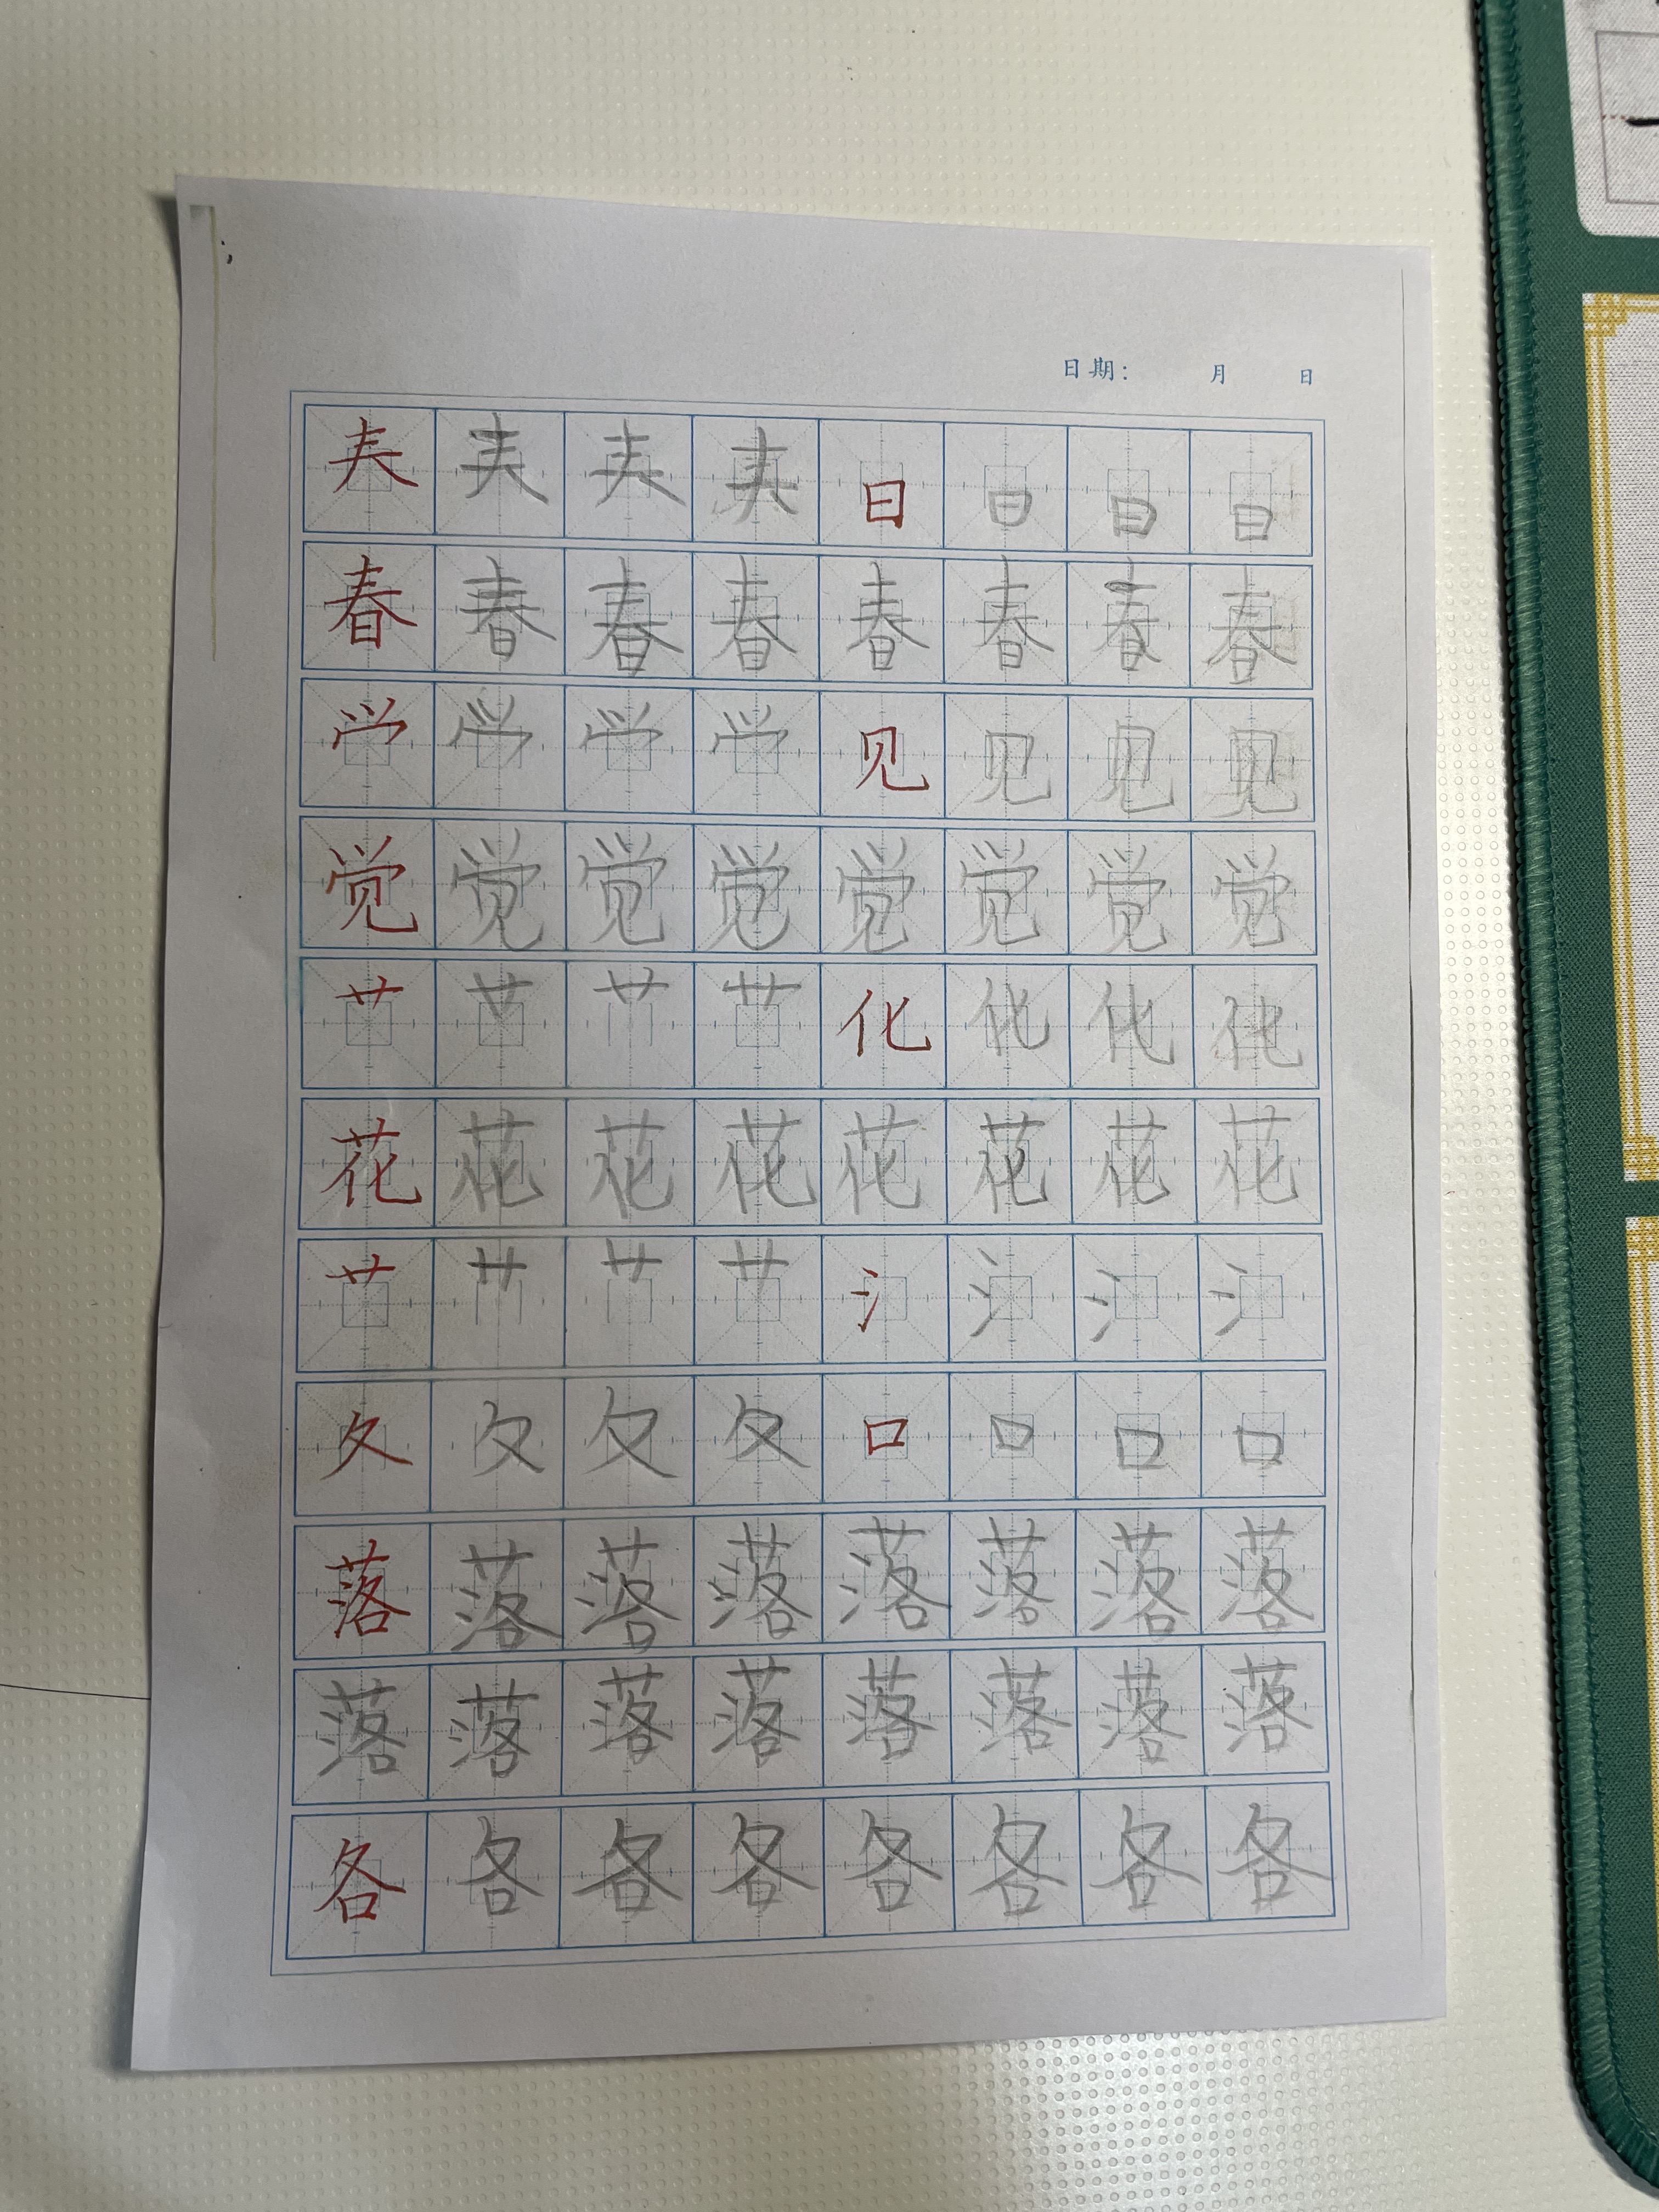 日期： 月 日
𡗗 𡗗 𡗗 𡗗 日 日 日 日
春 春 春 春 春 春 春 春
𰃮 𰃮 𰃮 𰃮 见 见 见 见
觉 觉 觉 觉 觉 觉 觉 觉
艹 艹 艹 艹 化 化 化 化
花 花 花 花 花 花 花 花
艹 艹 艹 艹 氵 氵 氵 氵
夂 夂 夂 夂 口 口 口 口
落 落 落 落 落 落 落 落
落 落 落 落 落 落 落 落
各 各 各 各 各 各 各 各